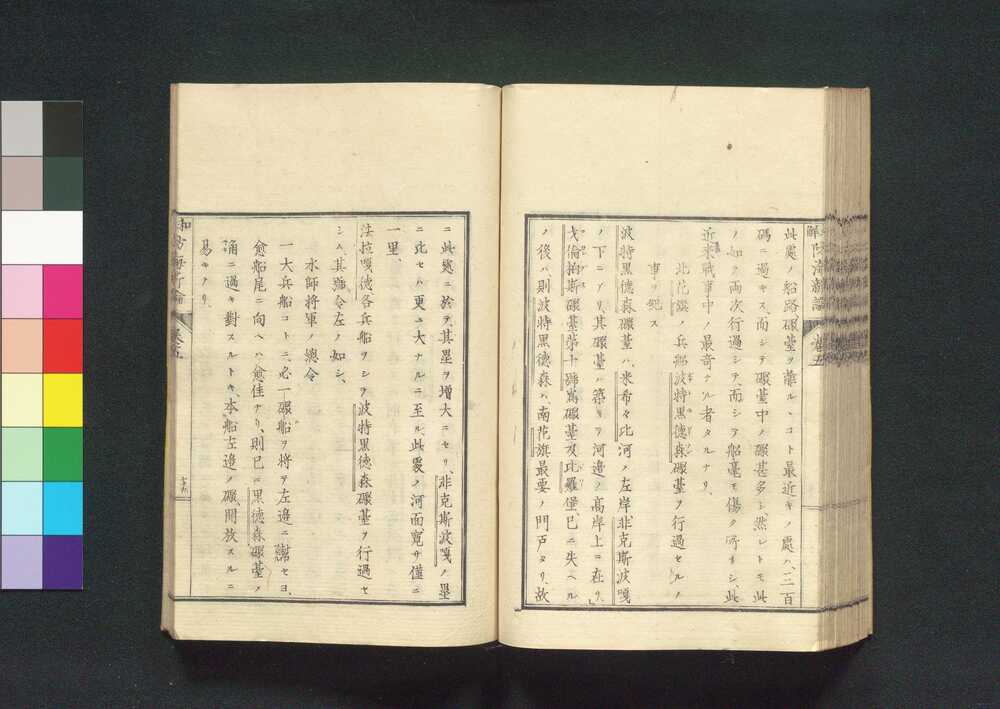 此處ノ船路礟臺ヲ離ルヽコト最近キノ處ハ、三百
碼ニ過キス、而シテ礟臺中ノ礟甚多シ、然レトモ此
ノ如ク兩次行過シテ、而シテ船毫モ傷ク所ナシ、此
近來戰事中ノ最奇ナル者タルナリ、
北花旗ノ兵船波特黑德森礟臺ヲ行過セルノ
事ヲ規ス
波特黑德森礟臺ハ、米希々比河ノ左岸、非克斯波嘎
ノ下ニアリ、其礟臺ハ築キテ河邉ノ高岸上ニ在リ、
戈倫拍斯礟臺第十號嶌礟臺及比羅堡、已ニ失ヘル
ノ後ハ、則波特黑德森ハ、南花旗最要ノ門戸タリ、故
ニ此處ニ於テ、其壘ヲ增大ニセリ、非克斯波嘎ノ壘
ニ比セハ更ニ大ナルニ至ル、此處ノ河面寬サ僅ニ
一里、
法拉嘎德各兵船ヲシテ波特黑德森礟臺ヲ行過セ
シム、其號令左ノ如シ、
水師將軍ノ總令
一大兵船コトニ、必一礟船ヲ將テ左邉ニ
愈船尾ニ向ヘハ愈佳ナリ、則已ニ黑德森礟臺ノ
涌ニ過キ對スルトキ、本船左邉ノ礟、開放スルニ
易キナリ、